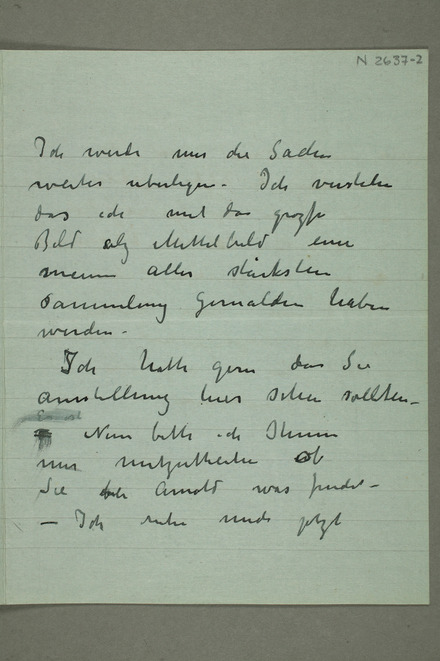 N 2637-2
Ich werde mir die Sachen
weiter überlegen - Ich verstehe
das ich mit das grosse
Bild als Mittelbild eine
meine aller stärksten
Sammlung Gemälden haben
werden -
Ich hatte gern das Sie
austellung hier sehen sollten -
Es ist
Nun bitte ich Ihnen
mir mitzutheilen ob
Sie Arnold was findet -
- Ich reise jetzt